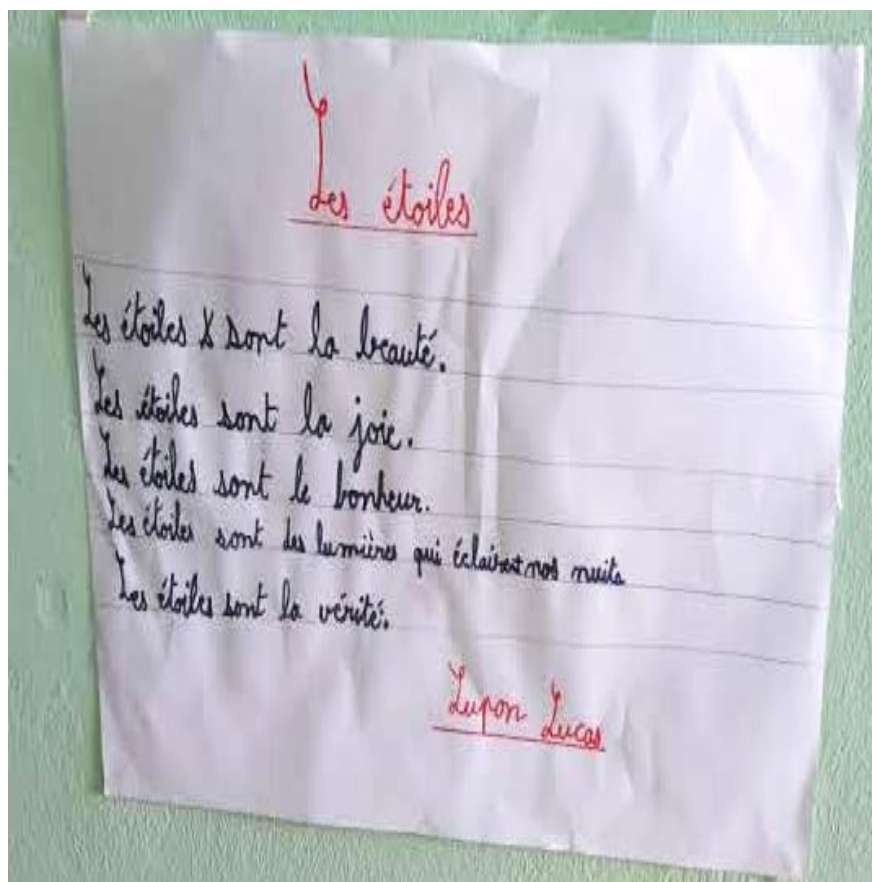 Les étoiles
Les étoiles sont la beauté.
Les étoiles sont la joie.
Les étoiles sont le bonheur.
Les étoiles sont des lumières qui éclairent nos nuits
Les étoiles sont la vérité.
Lupon Lucas